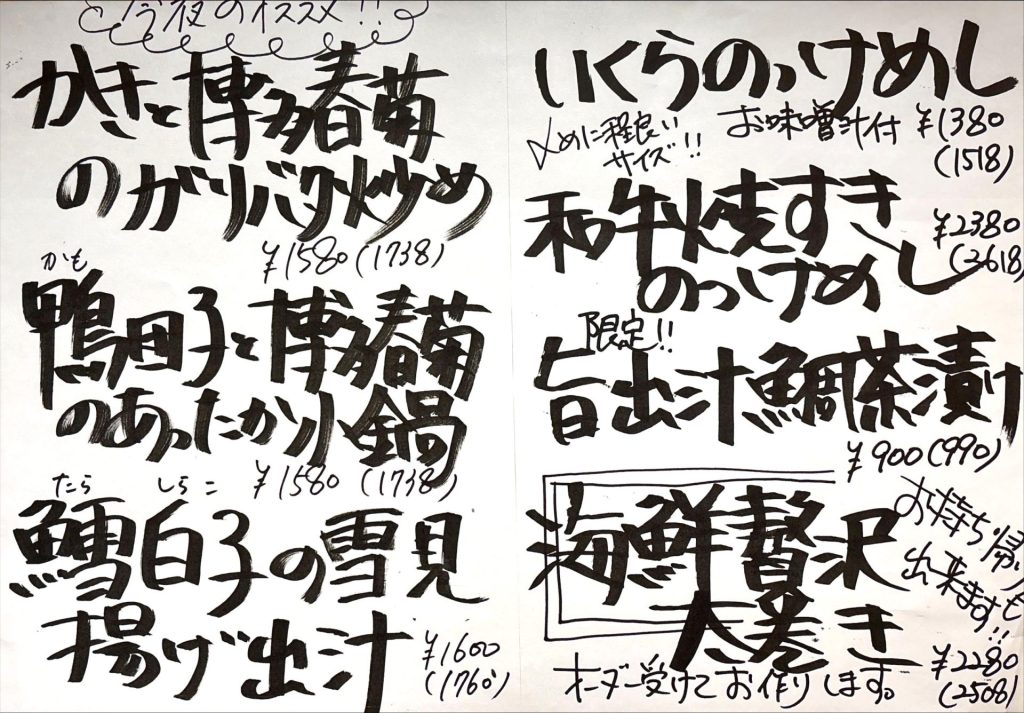 今夜のオススメ!!
かきと博多春菊
のガリバタ炒め
¥1580(1738)
かも
鴨団子と博多春菊
のあったか小鍋
¥1580(1738)
たら しらこ
鱈白子の雪見
揚げ出汁
¥1600
(1760)
いくらのっけめし
〆めに程良い
サイズ!!
お味噌汁付 ¥1380
(1518)
和牛焼すき
のっけめし
¥2380
(2618)
限定!!
旨出汁鯛茶漬け
¥900(990)
海鮮贅沢
太巻き
お持ち帰り
出来ますも!!
オーダー受けてお作りします。
¥2280
(2508)